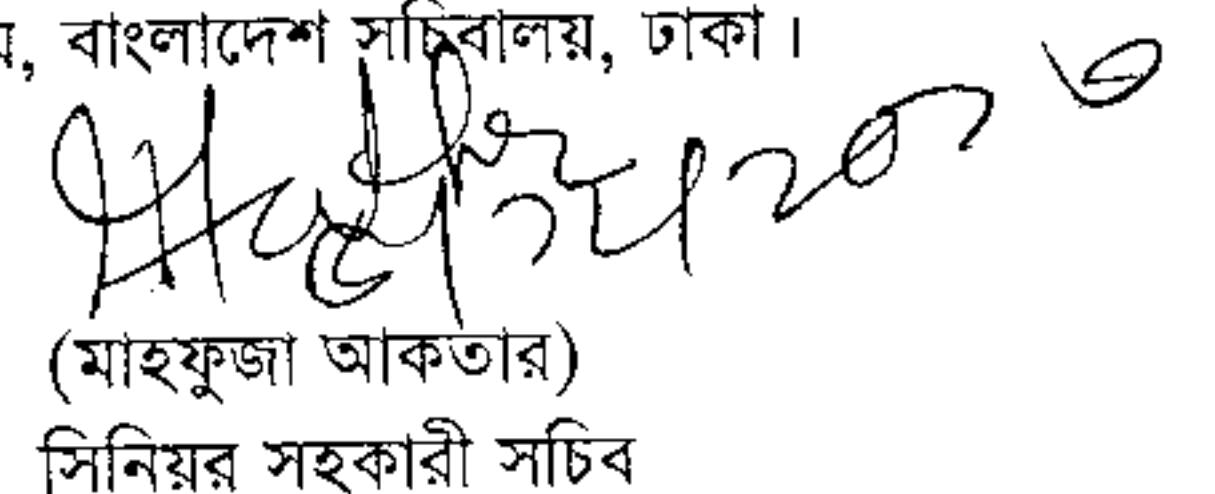 বাংলাদেশ সচিবালয়, ঢাকা।
(মাহফুজা আকতার)
সিনিয়র সহকারী সচিব